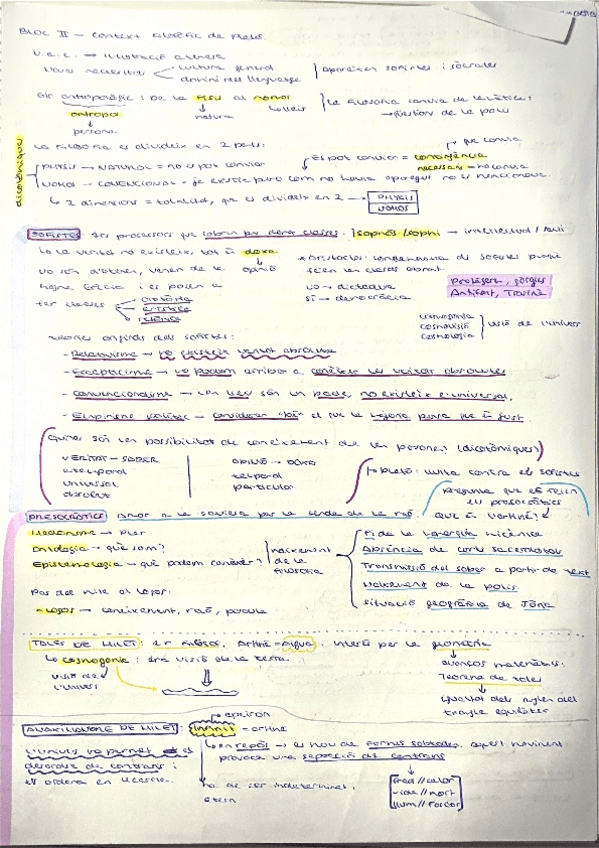 BLOC II - Context filosòfic de Plató.
V a.C. → Il·lustració atenesa
Noves necessitats cultura general
domini del llenguatge
Apareixen sofistes i Sòcrates
Gir antropològic: De la fisis al nomos
antropos natura lleis
persona
La filosofia canvia de temàtica:
→ gestió de la polis
La filosofia es divideix en 2 parts:
dicotòmiques
PHYSIS → NATURAL = no es pot canviar
Es pot canviar = contingència
que canvia
necessari → no canvia
NOMOS → CONVENCIONAL =
↳ 2 dimensions = totalitat, que es divideix en 2 → PHYSIS
NOMOS
SOFISTES: Són professors que cobren per donar classes.
Sophós / sophi → intel·lectual / savi
↳ La veritat no existeix, tot és doxa
opinió
No són d'Atenes, venen de la
Magna Grècia i es posen a
fer classes oratòria
erística
retòrica
no → dictadura
sí → democràcia
Protàgora, Gòrgies
Antifont,
cosmogonia
cosmovisió
cosmologia
visió de l'univers
Teories originals dels sofistes:
- Relativisme → no existeix veritat absoluta
- Escepticisme → no podem arribar a conèixer les veritats absolutes
- Convencionalisme → Les lleis són un pacte, no existeix l'universal.
- Empirisme polític → considerar "bo" el que la majoria pensa que és just.
Quines són les possibilitats de coneixement de les persones? (dicotòmiques)
VERITAT - SABER
atemporal
universal
absolut
OPINIÓ → DOXA
temporal
particular
→ Plató: lluita contra els sofistes
PRESOCRÀTICS: Amor a la saviesa per la senda de la raó.
Pregunta que es feien
els presocràtics
Què és l'arkhé?
Hedonisme → pler
Ontologia → què som?
Epistemologia → què podem conèixer?
naixement
de la
filosofia
Fi de la talassocràcia micènica
Absència de corts sacerdotals
Transmissió del saber a partir de text
Naixement de la polis
Situació geogràfica de Jònia
Pas del mite al logos:
- Logos → coneixement, raó, paraula
TALES DE MILET: 1r filòsof, Arkhé = Aigua. Interès per la geometria
↳ cosmogonia: 1ra visió de la terra.
visió de
l'univers
avanços matemàtics:
Teorema de Tales
igualtat dels angles del
triangle equilàter
ANAXIMANDRE DE MILET: infinit = arkhé
apeiron
L'univers va permetre el
desordre de contraris i
es ordena en
↳ en repòs → es mou de formes sobtades, aquell moviment
provoca una separació de contraris
ha de ser indeterminat i
etern
fred // calor
vida // mort
llum // foscor